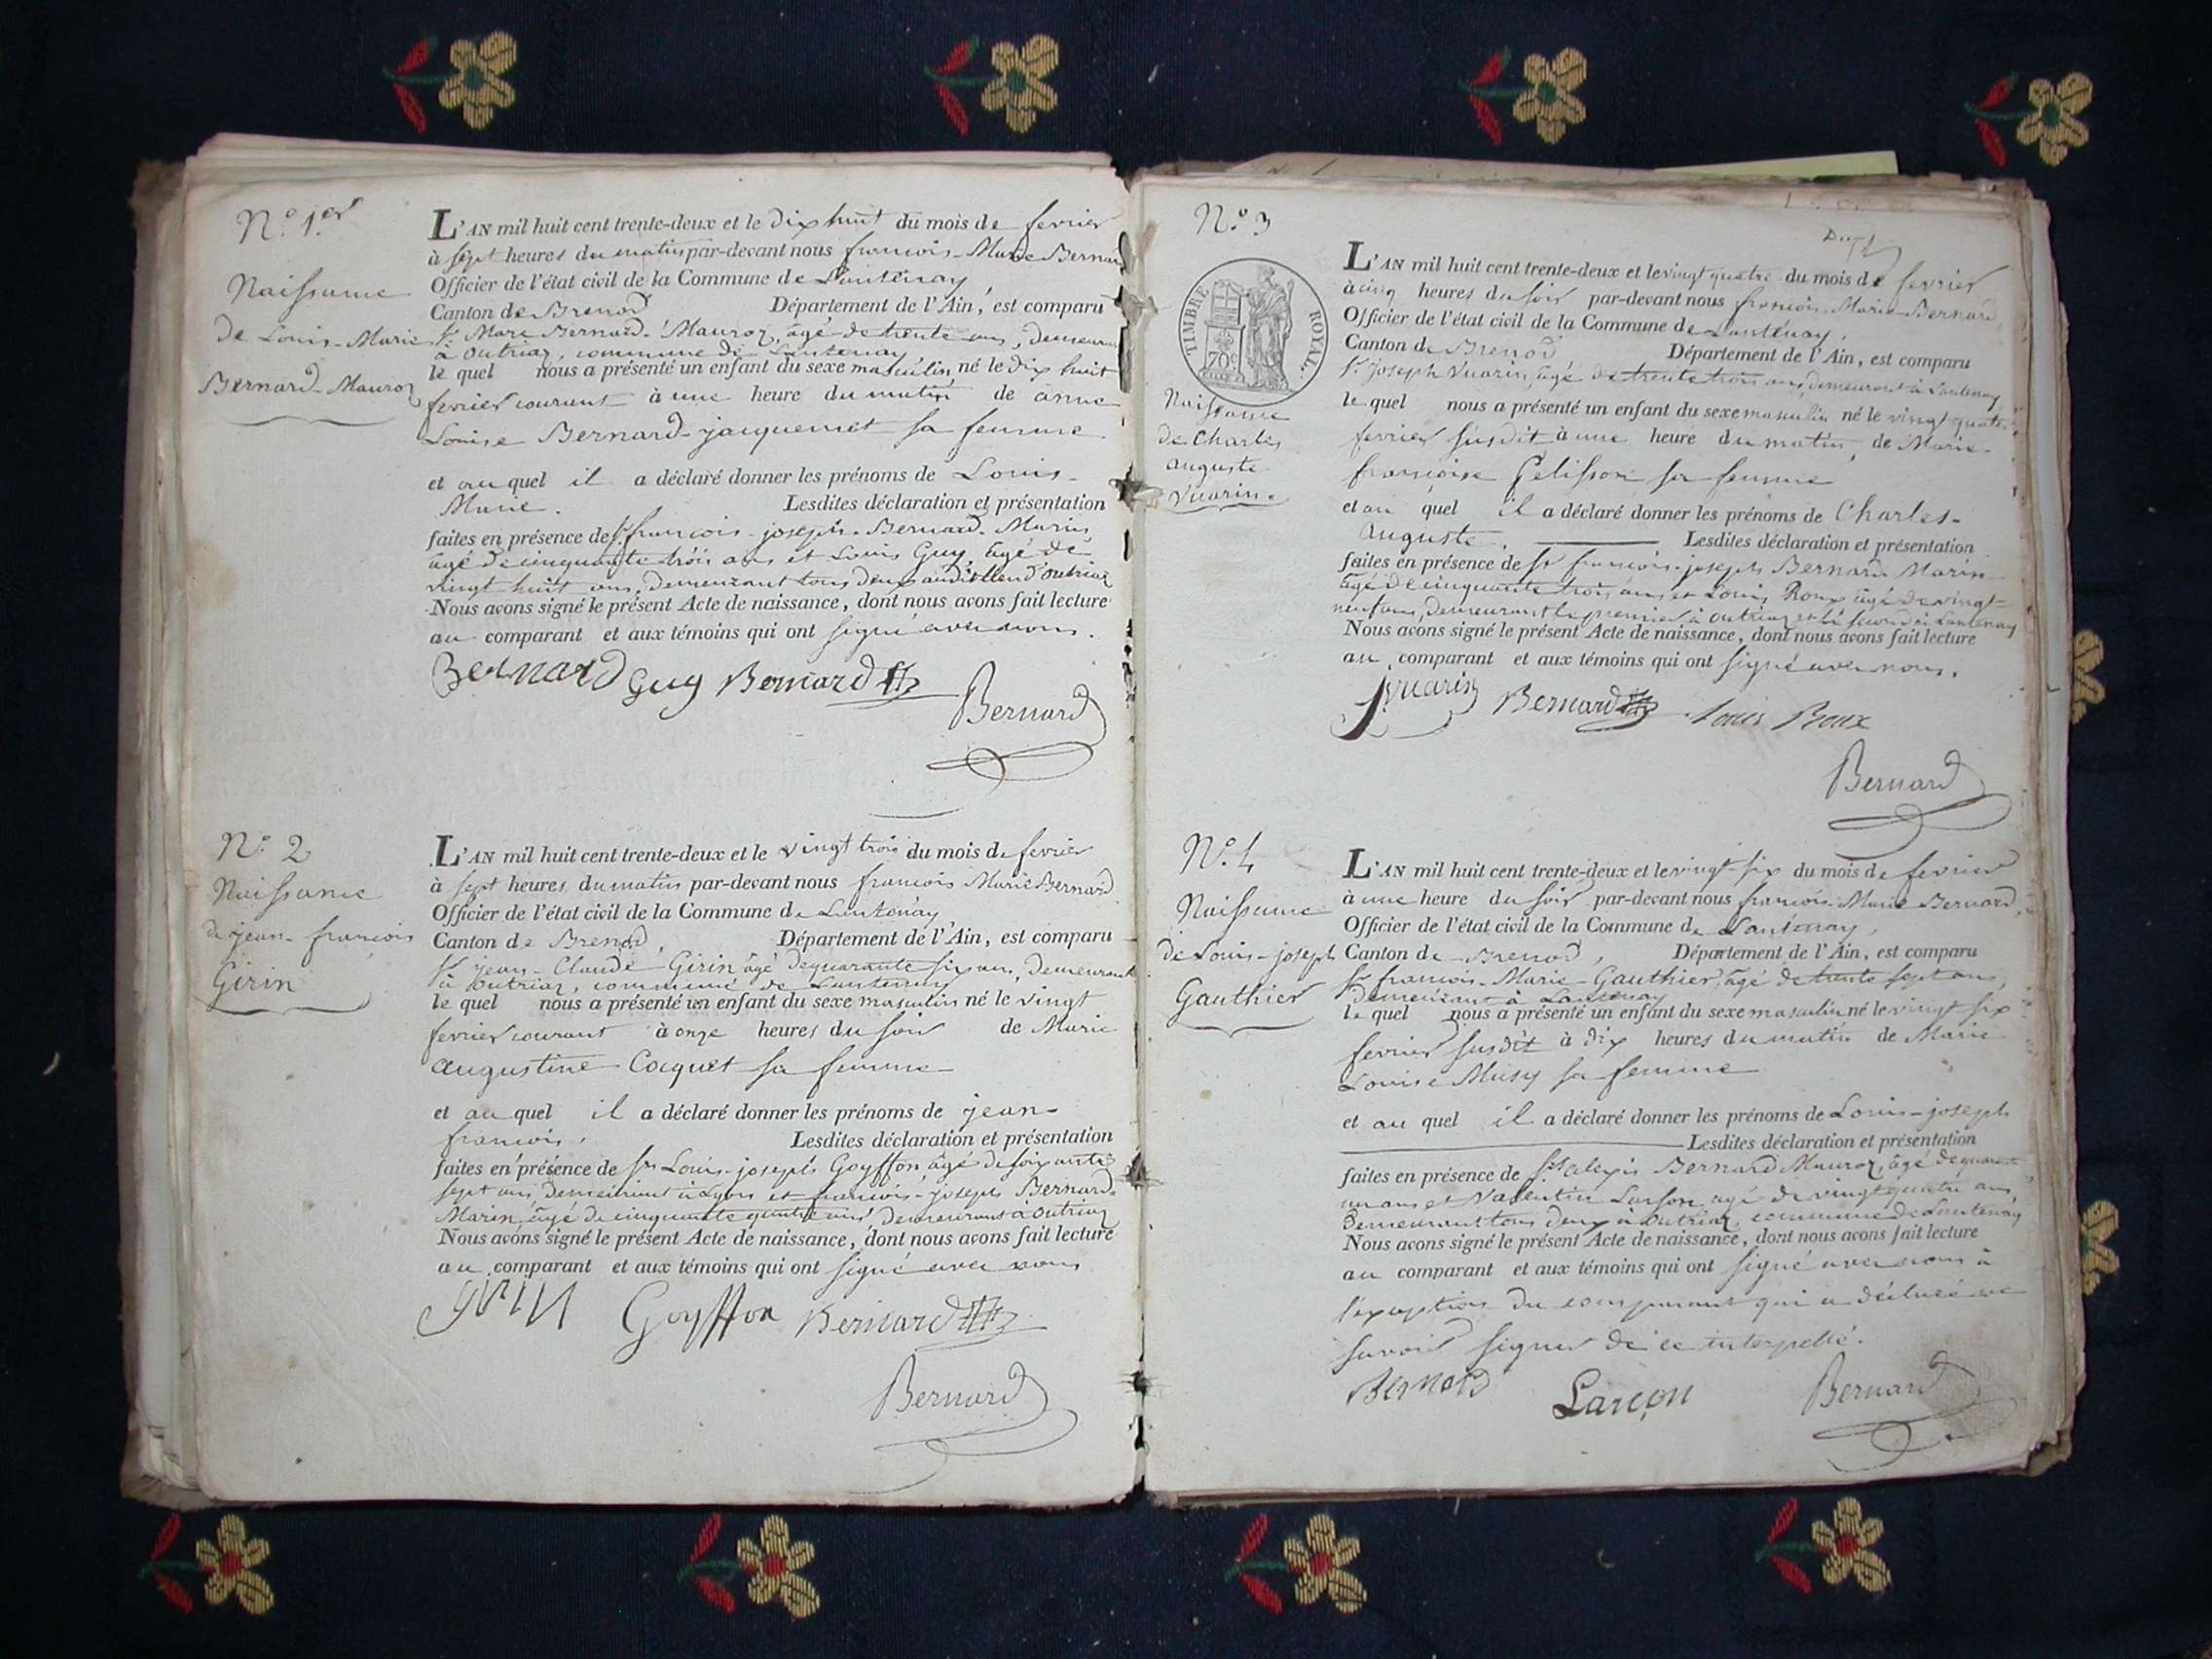 N.o 1.er
Naissance
de Louis-Marie
Bernard-Mauroz
L'AN mil huit cent trente-deux et le dix huit du mois de fevrier
à sept heures du matin par-devant nous francois-Marie Bernard
Officier de l'état civil de la Commune de Lantenay
Canton de Brenod Département de l'Ain, est comparu
Sr Marc Bernard-Mauroz, âgé de trente ans, demeurant
à Outriaz, commune de Lantenay
le quel nous a présenté un enfant du sexe masculin né le dix huit
fevrier courant à une heure du matin de anne
Louise Bernard-jacquemet sa femme
et au quel il a déclaré donner les prénoms de Louis-
Marie. Lesdites déclaration et présentation
faites en présence de Sr francois-joseph-Bernard-Marin
âgé de cinquante trois ans et Louis Guy, âgé de
vingt huit ans, demeurant tous deux audit lieu d'Outriaz
Nous avons signé le présent Acte de naissance, dont nous avons fait lecture
au comparant et aux témoins qui ont signé avec nous.
Bernard Guy Bernard
Bernard
N.o 2
Naissance
de jean-françois
Girin
L'AN mil huit cent trente-deux et le vingt trois du mois de fevrier
à sept heures du matin par-devant nous francois Marie Bernard
Officier de l'état civil de la Commune de Lantenay
Canton de Brenod, Département de l'Ain, est comparu
Sr jean-Claude Girin âgé de quarante six ans, demeurant
à Outriaz, commune de Lantenay
le quel nous a présenté un enfant du sexe masculin né le vingt
fevrier courant à onze heures du soir de Marie
augustine Cocquet sa femme
et au quel il a déclaré donner les prénoms de jean-
francois. Lesdites déclaration et présentation
faites en présence de Srs Louis-joseph Goyffon âgé de soixante
sept ans, demeurant à Lyon et francois-joseph Bernard-
Marin, âgé de cinquante quatre ans demeurant à Outriaz
Nous avons signé le présent Acte de naissance, dont nous avons fait lecture
au comparant et aux témoins qui ont signé avec nous
girin Goyffon Bernard
Bernard
N.o 3
TIMBRE ROYAL
70c
Naissance
de Charles
auguste
Vuarin.
L'AN mil huit cent trente-deux et le vingt quatre du mois de fevrier
à cinq heures du soir par-devant nous françois-Marie-Bernard
Officier de l'état civil de la Commune de Lantenay,
Canton de Brenod Département de l'Ain, est comparu
Sr joseph Vuarin, âgé de trente trois ans, demeurant à Lantenay
le quel nous a présenté un enfant du sexe masculin né le vingt quatre
fevrier susdit à une heure du matin, de Marie-
françoise Pelisson sa femme
et au quel il a déclaré donner les prénoms de Charles-
Auguste. Lesdites déclaration et présentation
faites en présence de Sr francois-joseph Bernard Marin
âgé de cinquante trois ans et Louis Roux âgé de vingt-
neuf ans, demeurant le premier à Outriaz et le second à Lantenay
Nous avons signé le présent Acte de naissance, dont nous avons fait lecture
au comparant et aux témoins qui ont signé avec nous.
Vuarin Bernard Louis Roux
Bernard
N.o 4
Naissance
de Louis-joseph
Gauthier
L'AN mil huit cent trente-deux et le vingt-six du mois de fevrier
à une heure du soir par-devant nous francois-Marie Bernard,
Officier de l'état civil de la Commune de Lantenay,
Canton de Brenod, Département de l'Ain, est comparu
Sr francois-Marie-Gauthier, âgé de trente sept ans,
demeurant à Lantenay
le quel nous a présenté un enfant du sexe masculin né le vingt six
fevrier susdit à dix heures du matin de Marie
Louise Musy sa femme
et au quel il a déclaré donner les prénoms de Louis-joseph
Lesdites déclaration et présentation
faites en présence de Srs alexis Bernard Mauroz, âgé de quarante
un ans et Valentin Larson âgé de vingt quatre ans,
demeurant tous deux à Outriaz, commune de Lantenay
Nous avons signé le présent Acte de naissance, dont nous avons fait lecture
au comparant et aux témoins qui ont signé avec nous à
l'exception du comparant qui a déclaré ne
savoir signer de ce interpellé.
Bernard Larçon Bernard